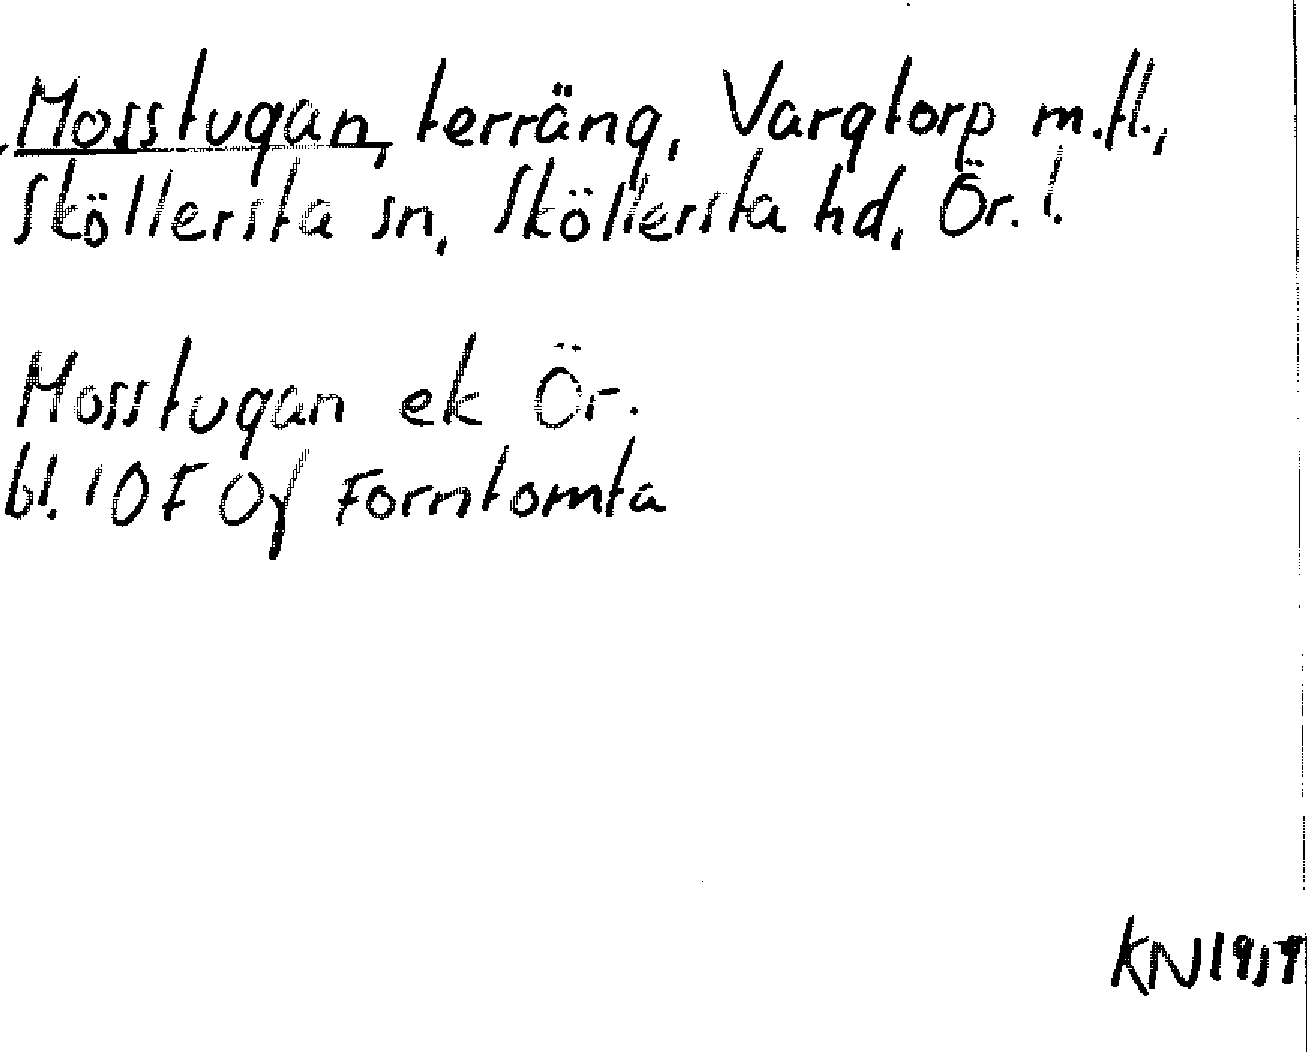 Mosstugan, terräng, Vargtorp m.fl.,
Sköllersta sn, Sköllersta hd, Ör. l.
Mosstugan ek Ör.
bl. 10F 0f Forntomta
KN